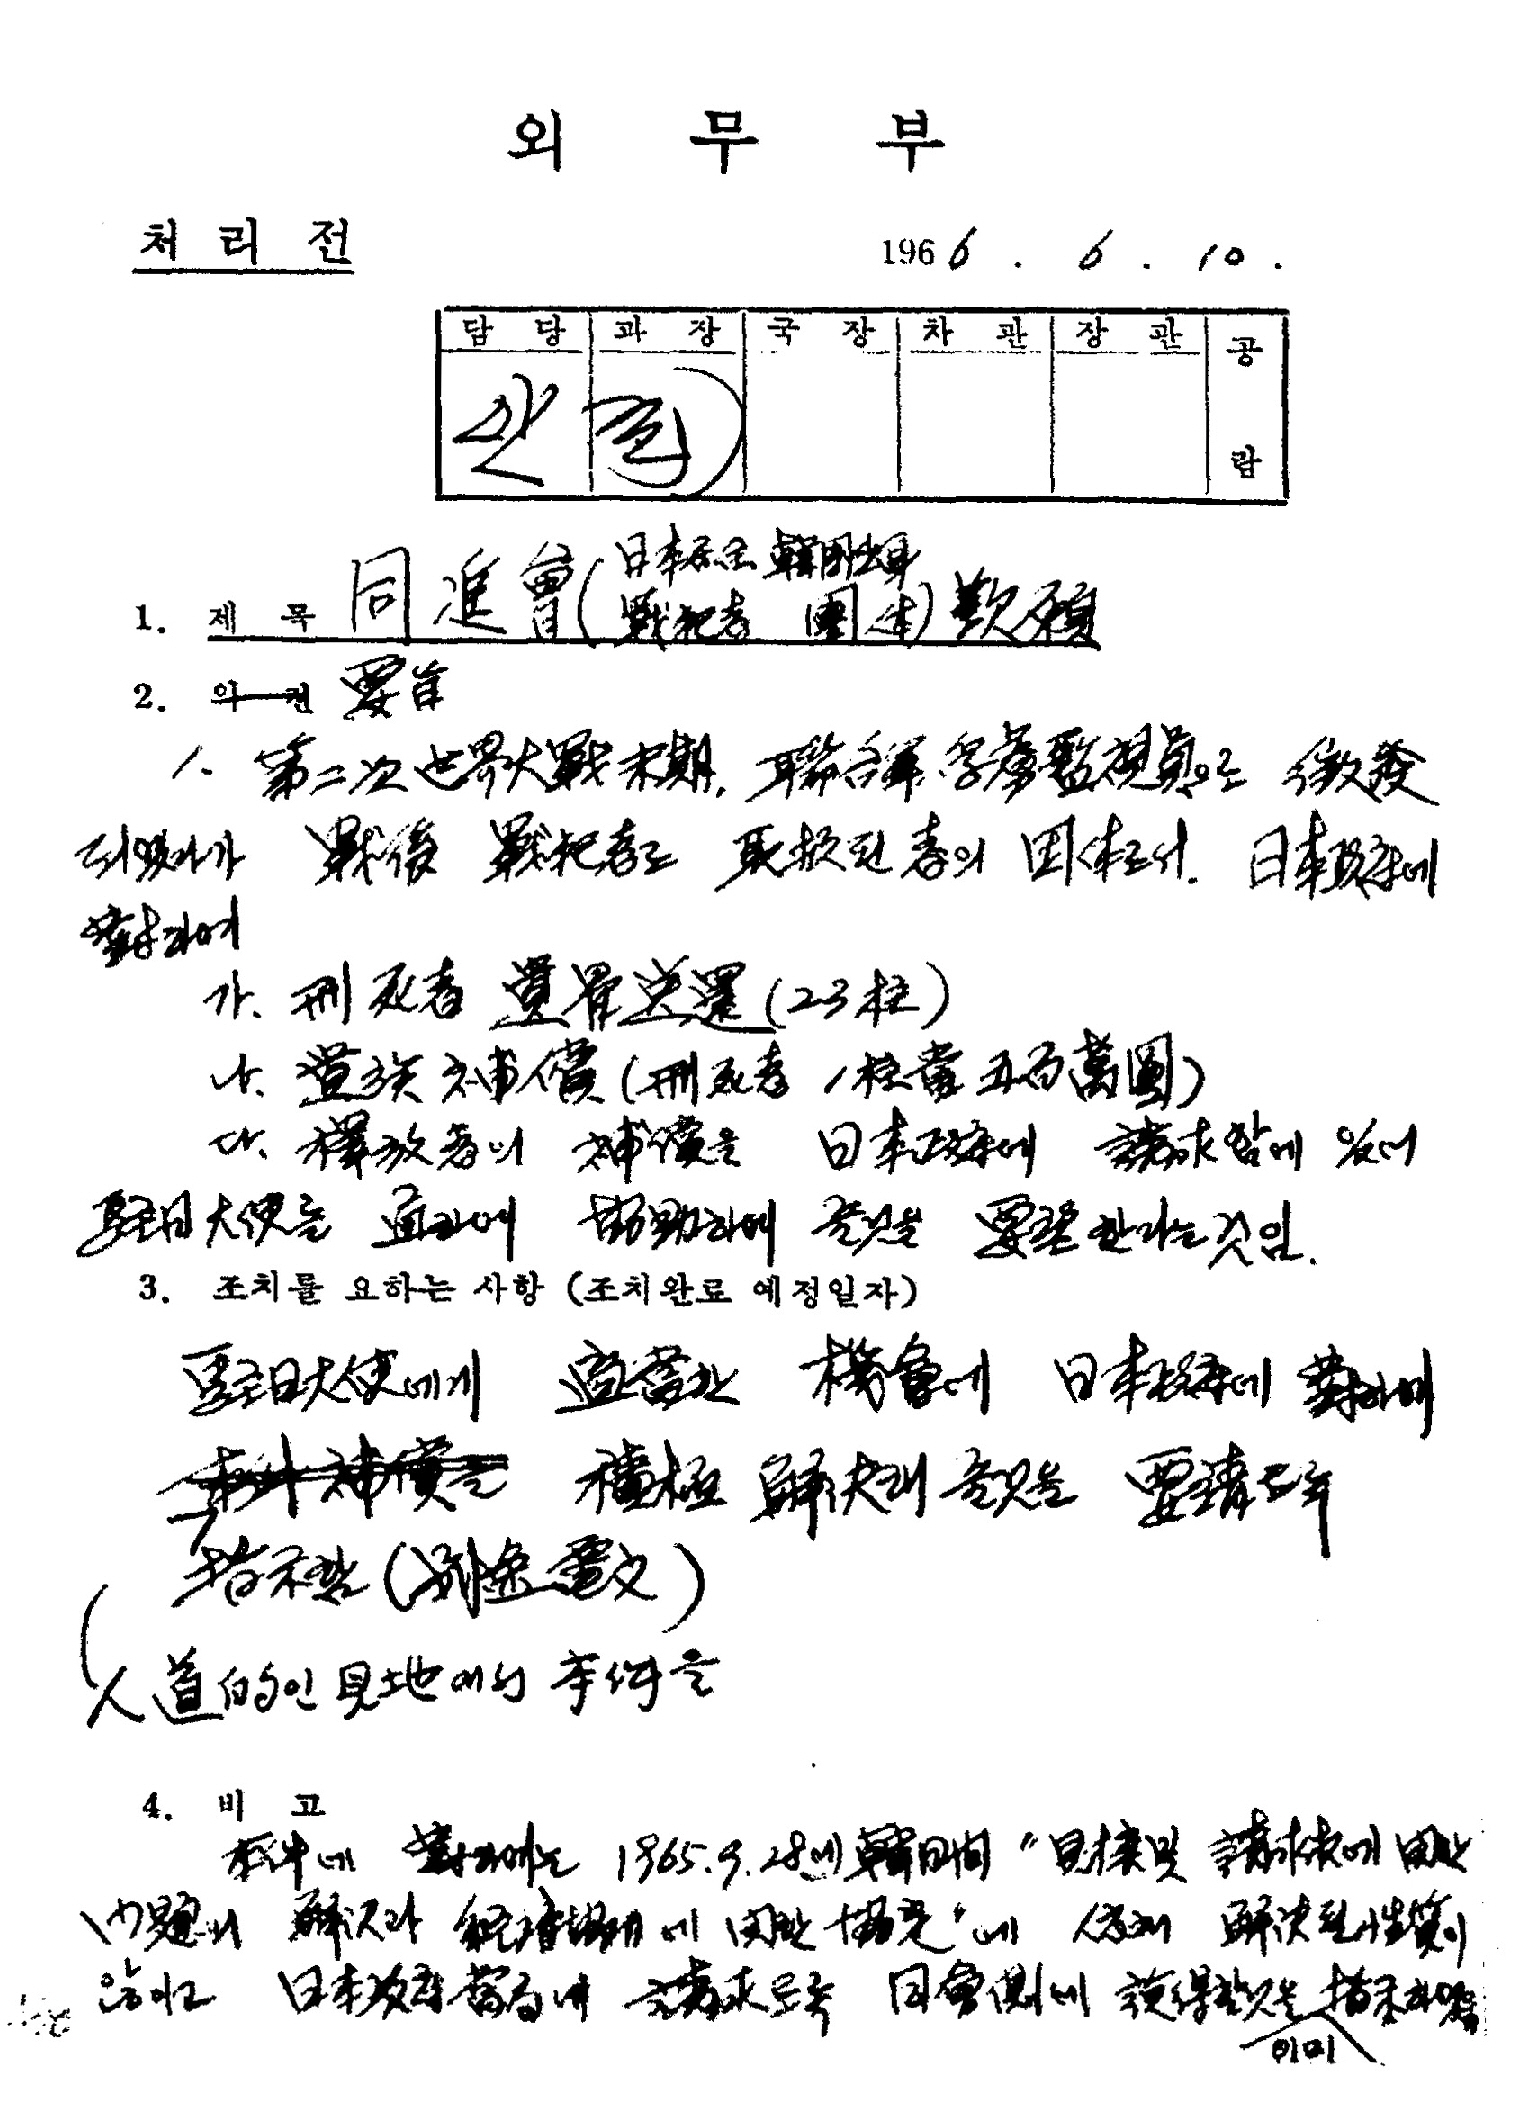 외 무 부
처 리 전
1966. 6. 10.
담 당 과 장 국 장 차 관 장 관 공 람
1. 제 목 同進會(日本居住 韓国出身 戰犯者 團体) 歎願
2. 의 견 要旨
1. 第二次世界大戰末期, 聯合軍 俘虜監視員으로 徵發
되였다가 戰後 戰犯者로 取扱된 者의 団体로서, 日本政府에
對하여
가. 刑死者 遺骨送還 (23柱)
나. 遺族補償 (刑死者 1柱當 五百萬圓)
다. 釋放者의 補償을 日本政府에 請求함에 있어
駐日大使를 通하여 協助하여 줄것을 要望한다는것임.
3. 조치를 요하는 사항 (조치완료 예정일자)
駐日大使에게 適當한 機會에 日本政府에 對하여
補償을 積極 解決해 줄것을 要請도록
指示함 (別途 電文)
人道的인 見地에서 本件을
4. 비 고
本件에 對하여는 1965. 9. 28에 韓日間 "財産 및 請求権에 関한
問題의 解決과 経済協力에 関한 協定"에 依해 解決된 性質이
않이고 日本政府 當局에 請求로록 同會側에 說得할것을 指示하였음
이미